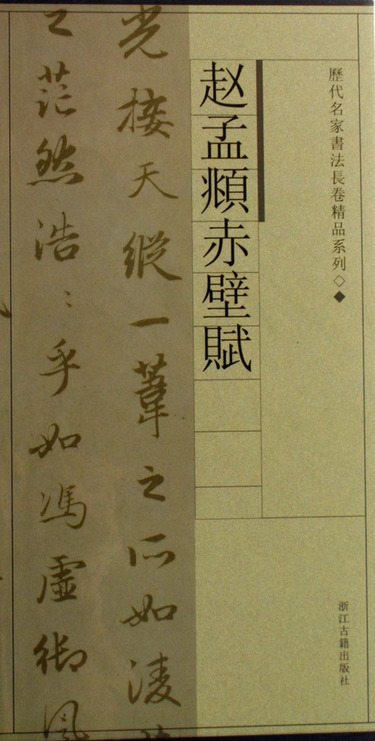 歷代名家書法長卷精品系列◇◆
赵孟頫赤壁賦
光接天縱一葦之所如凌
之茫然浩〻乎如馮虛御風
浙江古籍出版社